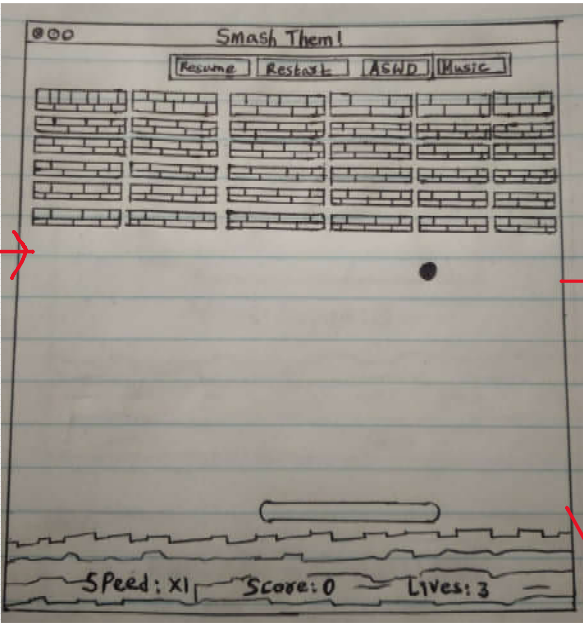 Smash Them!
Resume Restart ASWD Music
Speed: X1 Score: 0 Lives: 3